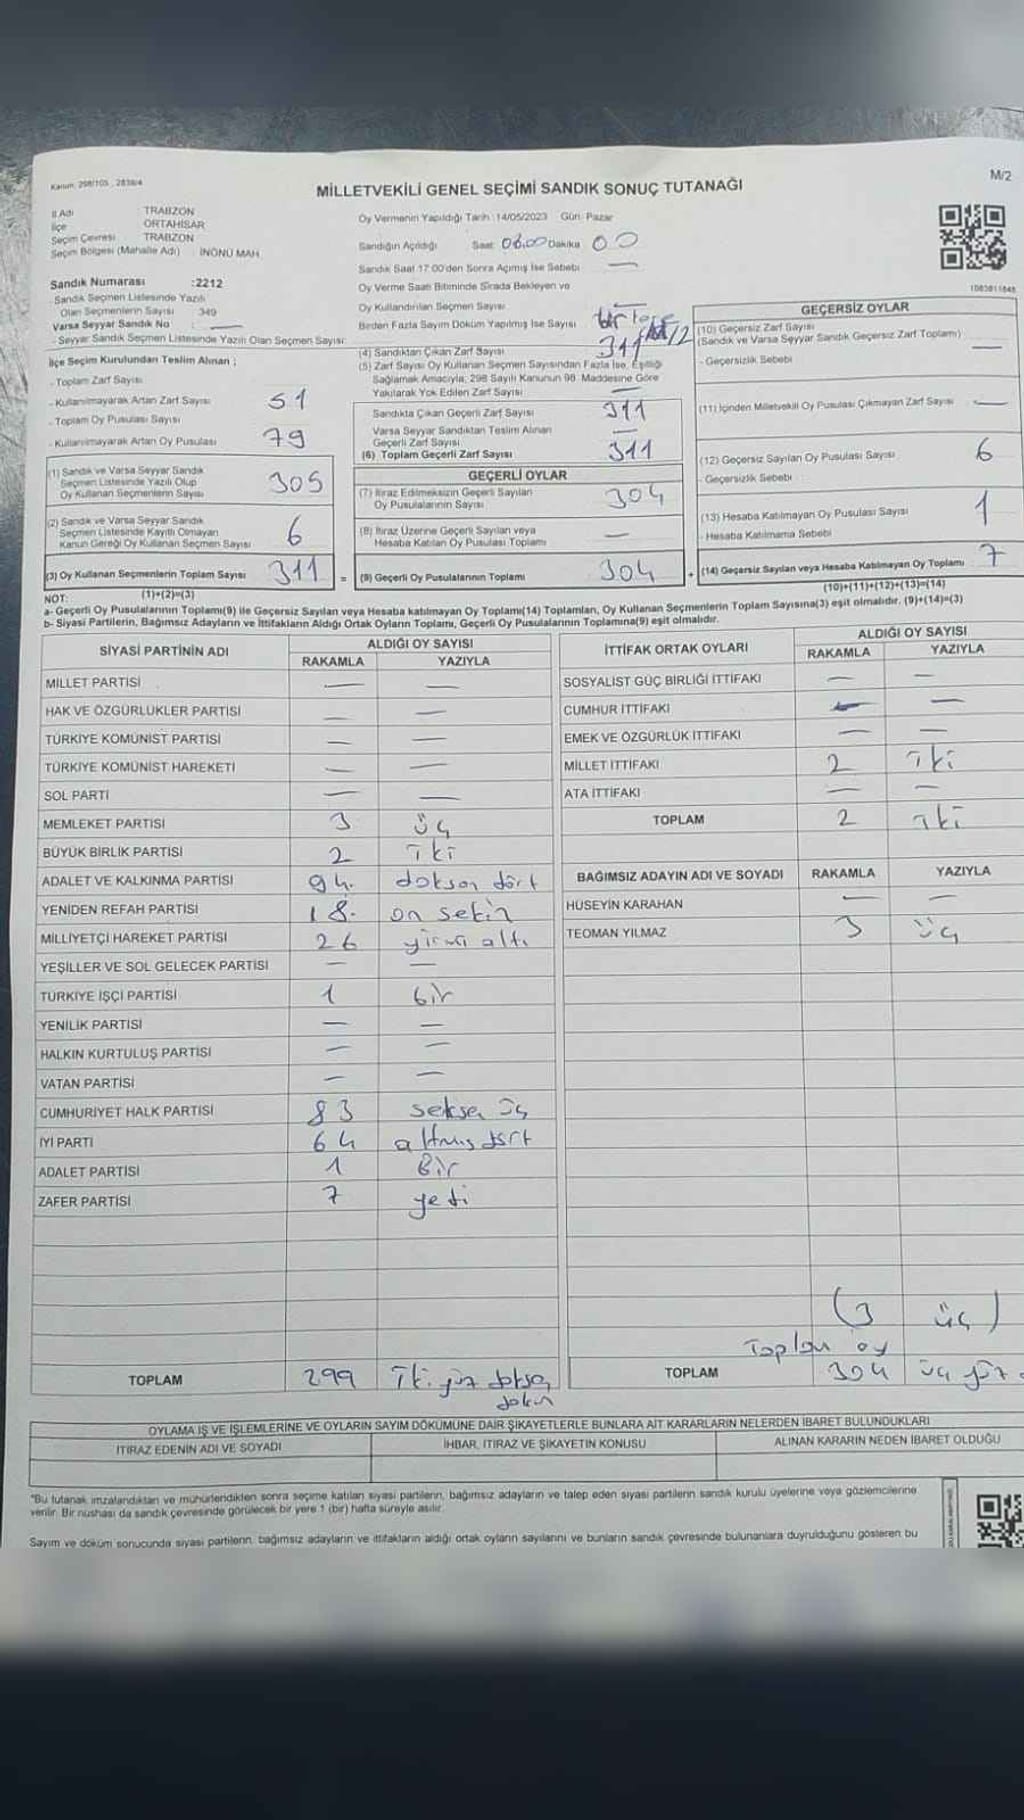 Kanun: 298/105 , 2839/4
M/2
MİLLETVEKİLİ GENEL SEÇİMİ SANDIK SONUÇ TUTANAĞI
İl Adı TRABZON
İlçe ORTAHİSAR
Seçim Çevresi TRABZON
Seçim Bölgesi (Mahalle Adı) İNÖNÜ MAH.
Sandık Numarası :2212
- Sandık Seçmen Listesinde Yazılı
Olan Seçmenlerin Sayısı 349
Varsa Seyyar Sandık No : —
- Seyyar Sandık Seçmen Listesinde Yazılı Olan Seçmen Sayısı:
İlçe Seçim Kurulundan Teslim Alınan ;
- Toplam Zarf Sayısı
- Kullanılmayarak Artan Zarf Sayısı 51
- Toplam Oy Pusulası Sayısı
- Kullanılmayarak Artan Oy Pusulası 79
(1) Sandık ve Varsa Seyyar Sandık
Seçmen Listesinde Yazılı Olup
Oy Kullanan Seçmenlerin Sayısı 305
(2) Sandık ve Varsa Seyyar Sandık
Seçmen Listesinde Kayıtlı Olmayan
Kanun Gereği Oy Kullanan Seçmen Sayısı 6
(3) Oy Kullanan Seçmenlerin Toplam Sayısı 311 =
Oy Vermenin Yapıldığı Tarih :14/05/2023 Gün: Pazar
Sandığın Açıldığı Saat: 08.00 Dakika 00
Sandık Saat 17:00'den Sonra Açılmış İse Sebebi —
Oy Verme Saati Bitiminde Sırada Bekleyen ve
Oy Kullandırılan Seçmen Sayısı —
Birden Fazla Sayım Döküm Yapılmış İse Sayısı
(4) Sandıktan Çıkan Zarf Sayısı 311
(5) Zarf Sayısı Oy Kullanan Seçmen Sayısından Fazla İse, Eşitliği
Sağlamak Amacıyla, 298 Sayılı Kanunun 98. Maddesine Göre
Yakılarak Yok Edilen Zarf Sayısı —
Sandıkta Çıkan Geçerli Zarf Sayısı 311
Varsa Seyyar Sandıktan Teslim Alınan
Geçerli Zarf Sayısı —
(6) Toplam Geçerli Zarf Sayısı 311
GEÇERLİ OYLAR
(7) İtiraz Edilmeksizin Geçerli Sayılan
Oy Pusulalarının Sayısı 304
(8) İtiraz Üzerine Geçerli Sayılan veya
Hesaba Katılan Oy Pusulası Toplamı —
(9) Geçerli Oy Pusulalarının Toplamı 304 +
GEÇERSİZ OYLAR
(10) Geçersiz Zarf Sayısı
(Sandık ve Varsa Seyyar Sandık Geçersiz Zarf Toplamı) —
- Geçersizlik Sebebi
(11) İçinden Milletvekili Oy Pusulası Çıkmayan Zarf Sayısı —
(12) Geçersiz Sayılan Oy Pusulası Sayısı 6
- Geçersizlik Sebebi :
(13) Hesaba Katılmayan Oy Pusulası Sayısı 1
- Hesaba Katılmama Sebebi
(14) Geçersiz Sayılan veya Hesaba Katılmayan Oy Toplamı 7
NOT: (1)+(2)=(3) (10)+(11)+(12)+(13)=(14)
a- Geçerli Oy Pusulalarının Toplamı(9) ile Geçersiz Sayılan veya Hesaba katılmayan Oy Toplamı(14) Toplamları, Oy Kullanan Seçmenlerin Toplam Sayısına(3) eşit olmalıdır. (9)+(14)=(3)
b- Siyasi Partilerin, Bağımsız Adayların ve İttifakların Aldığı Ortak Oyların Toplamı, Geçerli Oy Pusulalarının Toplamına(9) eşit olmalıdır.
SİYASİ PARTİNİN ADI ALDIĞI OY SAYISI
RAKAMLA YAZIYLA
MİLLET PARTİSİ — —
HAK VE ÖZGÜRLÜKLER PARTİSİ — —
TÜRKİYE KOMÜNİST PARTİSİ — —
TÜRKİYE KOMÜNİST HAREKETİ — —
SOL PARTİ — —
MEMLEKET PARTİSİ 3 üç
BÜYÜK BİRLİK PARTİSİ 2 iki
ADALET VE KALKINMA PARTİSİ 94. doksan dört
YENİDEN REFAH PARTİSİ 18. on sekiz
MİLLİYETÇİ HAREKET PARTİSİ 26 yirmi altı
YEŞİLLER VE SOL GELECEK PARTİSİ — —
TÜRKİYE İŞÇİ PARTİSİ 1 bir
YENİLİK PARTİSİ — —
HALKIN KURTULUŞ PARTİSİ — —
VATAN PARTİSİ — —
CUMHURİYET HALK PARTİSİ 83 seksen üç
İYİ PARTİ 64 altmış dört
ADALET PARTİSİ 1 Bir
ZAFER PARTİSİ 7 yedi
TOPLAM 299 iki yüz doksan
dokuz
İTTİFAK ORTAK OYLARI ALDIĞI OY SAYISI
RAKAMLA YAZIYLA
SOSYALİST GÜÇ BİRLİĞİ İTTİFAKI — —
CUMHUR İTTİFAKI — —
EMEK VE ÖZGÜRLÜK İTTİFAKI — —
MİLLET İTTİFAKI 2 iki
ATA İTTİFAKI — —
TOPLAM 2 iki
BAĞIMSIZ ADAYIN ADI VE SOYADI RAKAMLA YAZIYLA
HÜSEYİN KARAHAN — —
TEOMAN YILMAZ 3 üç
(3 üç)
Toplam oy
TOPLAM 304 üç yüz
OYLAMA İŞ VE İŞLEMLERİNE VE OYLARIN SAYIM DÖKÜMÜNE DAİR ŞİKAYETLERLE BUNLARA AİT KARARLARIN NELERDEN İBARET BULUNDUKLARI
İTİRAZ EDENİN ADI VE SOYADI İHBAR, İTİRAZ VE ŞİKAYETİN KONUSU ALINAN KARARIN NEDEN İBARET OLDUĞU
"Bu tutanak imzalandıktan ve mühürlendikten sonra seçime katılan siyasi partilerin, bağımsız adayların ve talep eden siyasi partilerin sandık kurulu üyelerine veya gözlemcilerine
verilir. Bir nüshası da sandık çevresinde görülecek bir yere 1 (bir) hafta süreyle asılır.
Sayım ve döküm sonucunda siyasi partilerin, bağımsız adayların ve ittifakların aldığı ortak oyların sayılarını ve bunların sandık çevresinde bulunanlara duyrulduğunu gösteren bu